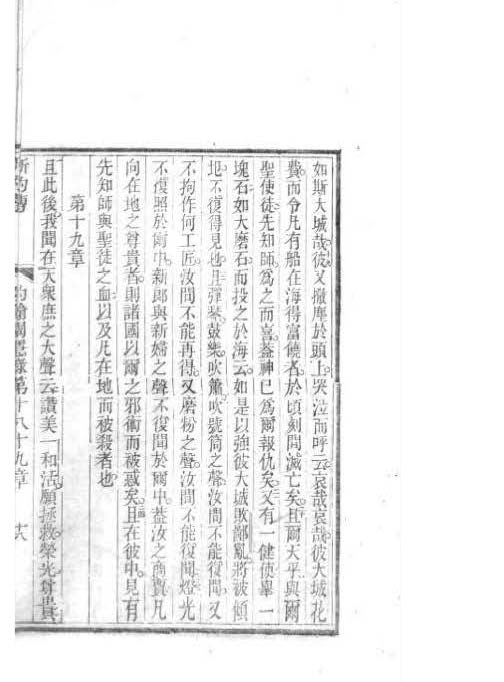 如斯大城哉彼又撒塵於頭上哭泣而呼云哀哉哀哉彼大城花
費而令凡有船在海得富饒者於頃刻間滅亡矣且爾天平與爾
聖使徒先知師為之而喜蓋神已為爾報仇矣又有一健使舉一
塊石如大磨石而投之於海云如是以強彼大城敗鄙亂將被傾
地不復得見也且彈琴鼓樂吹簫吹號筒之聲汝間不能復聞又
不拘作何工匠汝間不能再得又磨粉之聲汝間不能復聞燈光
不復照於爾中新郎與新婦之聲不復聞於爾中蓋汝之商賈凡
向在地之尊貴者則諸國以爾之邪術而被惑矣且在彼中見有
先知師與聖徒之血以及凡在地而被殺者也
第十九章
且此後我聞在天眾庶之大聲云讚美一和活願拯救榮光尊貴
新約傳
約翰 第十八十九章